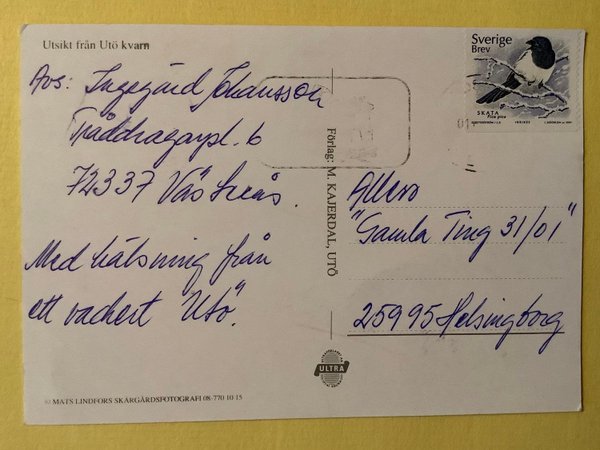 Utsikt från Utö kvarn
Avs: Ingegärd Johansson
Tråddragarpl. 6
72337 Västerås.
Med hälsning från
ett vackert "Utö".
© MATS LINDFORS SKÄRGÅRDSFOTOGRAFI 08-770 10 15
Förlag: M. KAJERDAL, UTÖ
ULTRA
Sverige
Brev
SKATA
Pica pica
Allers
"Gamla Ting 31/01"
25995 Helsingborg